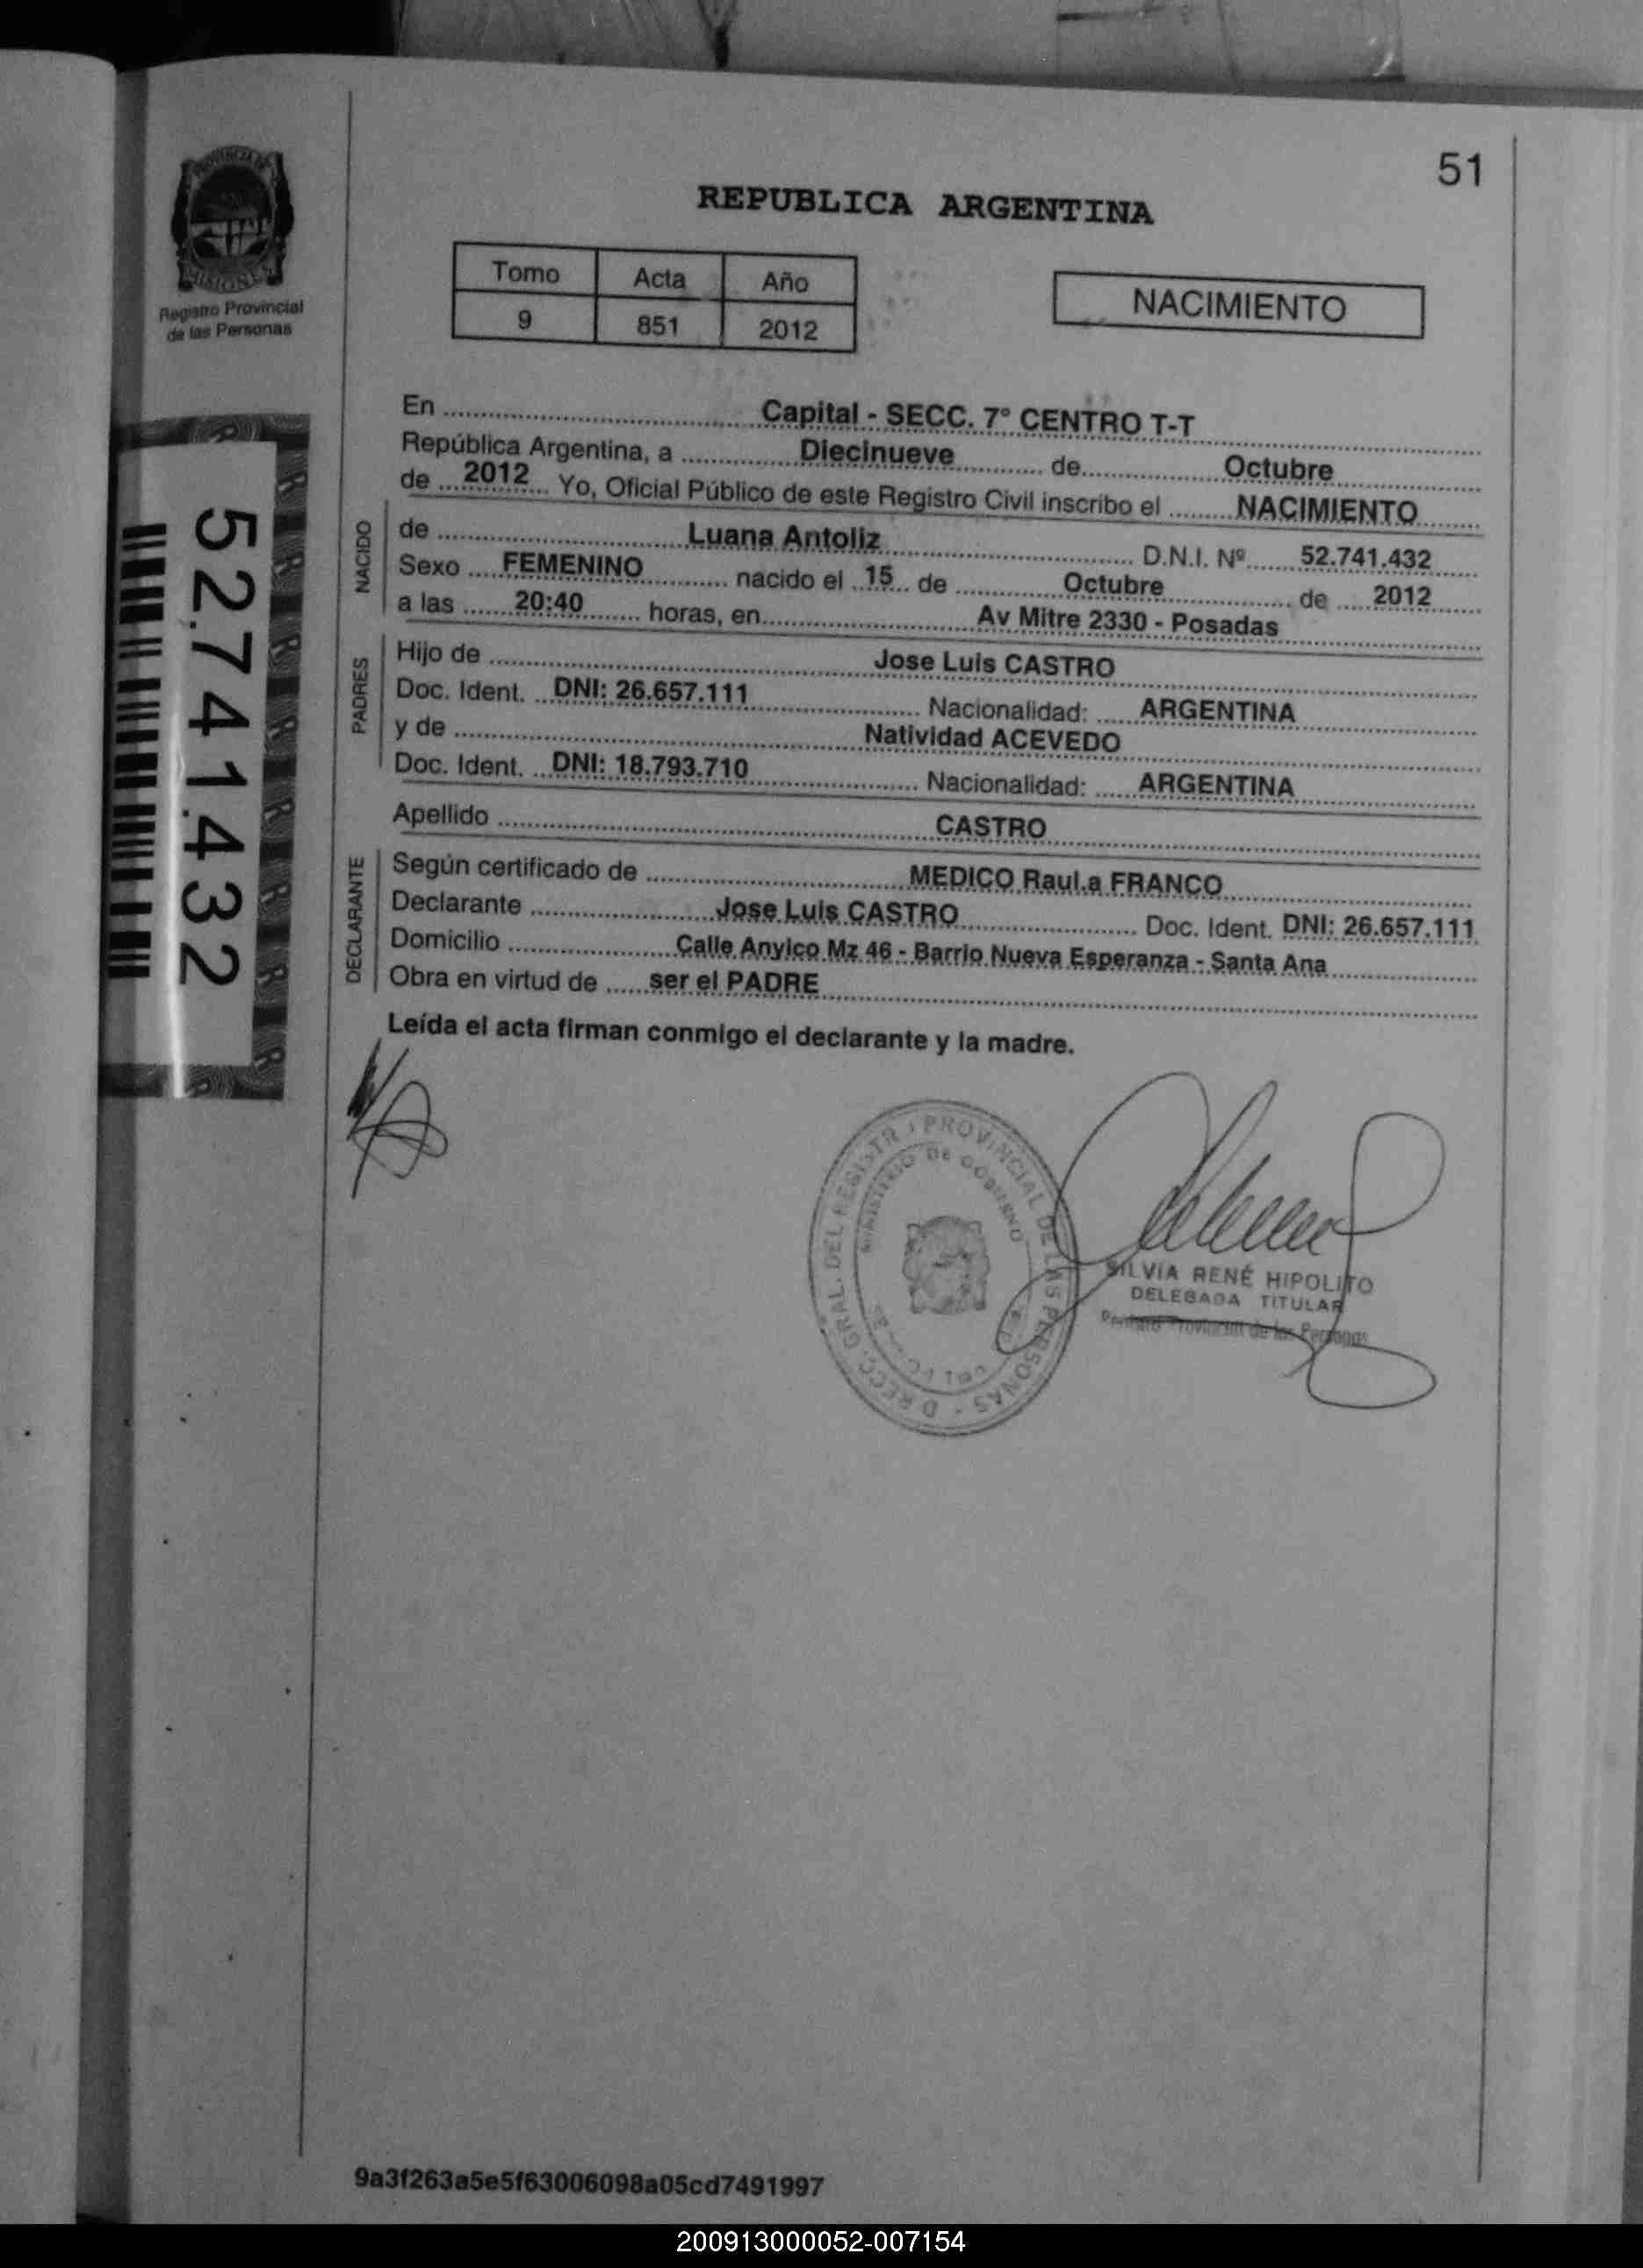 51
REPUBLICA ARGENTINA
PROVINCIA DE
MISIONES
Registro Provincial
de las Personas
Tomo Acta Año
9 851 2012
NACIMIENTO
52.741.432
En Capital - SECC. 7° CENTRO T-T
República Argentina, a Diecinueve de Octubre
de 2012 Yo, Oficial Público de este Registro Civil inscribo el NACIMIENTO
NACIDO
de Luana Antoliz D.N.I. Nº 52.741.432
Sexo FEMENINO nacido el 15 de Octubre de 2012
a las 20:40 horas, en Av Mitre 2330 - Posadas
PADRES
Hijo de Jose Luis CASTRO
Doc. Ident. DNI: 26.657.111 Nacionalidad: ARGENTINA
y de Natividad ACEVEDO
Doc. Ident. DNI: 18.793.710 Nacionalidad: ARGENTINA
Apellido CASTRO
DECLARANTE
Según certificado de MEDICO Raul.a FRANCO
Declarante Jose Luis CASTRO Doc. Ident. DNI: 26.657.111
Domicilio Calle Anyico Mz 46 - Barrio Nueva Esperanza - Santa Ana
Obra en virtud de ser el PADRE
Leída el acta firman conmigo el declarante y la madre.
GRAL. DEL REGISTR PROVINCIAL DE LAS PERSONAS - D RECC.
MINISTERIO DE GOBIERNO
SILVIA RENÉ HIPOLITO
DELEGADA TITULAR
Provincial de las Personas
9a3f263a5e5f63006098a05cd7491997
200913000052-007154